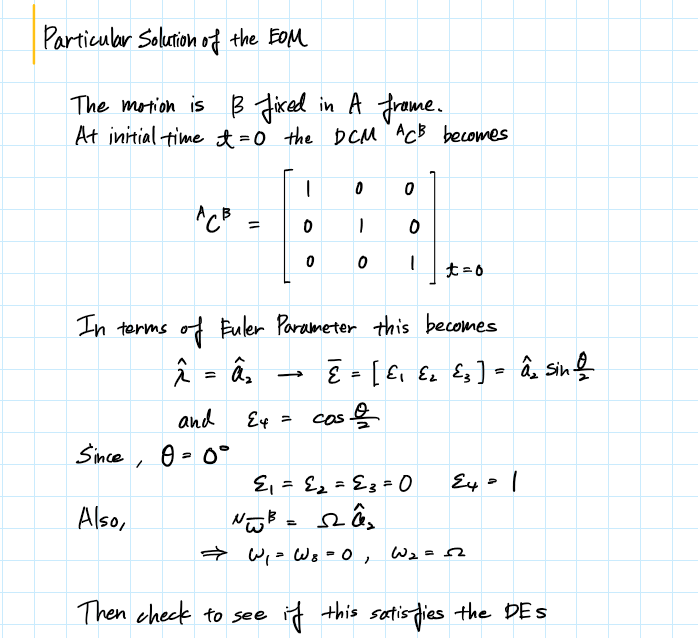 Particular Solution of the EOM
The motion is B fixed in A frame.
At initial time t=0 the DCM ᴬCᴮ becomes
ᴬCᴮ = [ 1 0 0
0 1 0
0 0 1 ] t=0
In terms of Euler Parameter this becomes
λ̂ = â₂ → ε̅ = [ ε₁ ε₂ ε₃ ] = â₂ sin θ/2
and ε₄ = cos θ/2
Since, θ = 0°
ε₁ = ε₂ = ε₃ = 0 ε₄ = 1
Also, ᴺω̅ᴮ = Ω â₂
⇒ ω₁ = ω₃ = 0, ω₂ = Ω
Then check to see if this satisfies the DEs